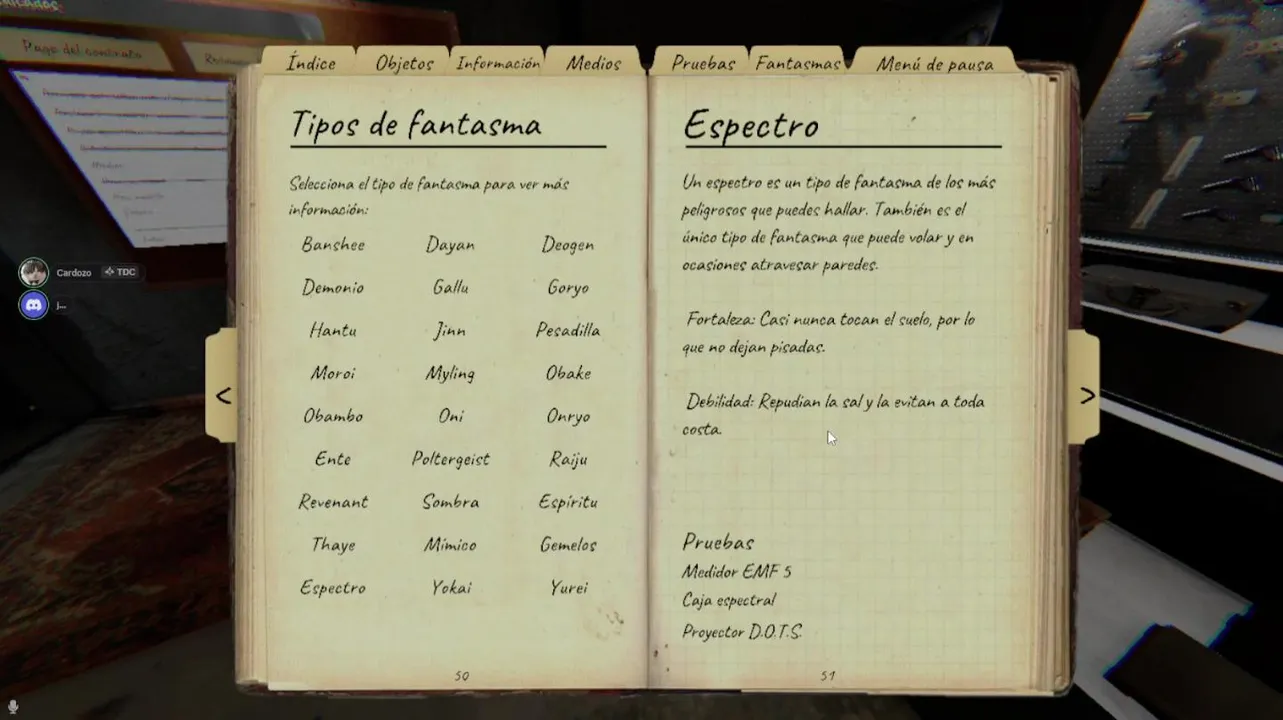 Pago del contrato
Índice
Objetos
Información
Medios
Pruebas
Fantasmas
Menú de pausa
Tipos de fantasma
Selecciona el tipo de fantasma para ver más
información:
Banshee Dayan Deogen
Demonio Gallu Goryo
Hantu Jinn Pesadilla
Moroi Myling Obake
Obambo Oni Onryo
Ente Poltergeist Raiju
Revenant Sombra Espíritu
Thaye Mímico Gemelos
Espectro Yokai Yurei
50
Espectro
Un espectro es un tipo de fantasma de los más
peligrosos que puedes hallar. También es el
único tipo de fantasma que puede volar y en
ocasiones atravesar paredes.
Fortaleza: Casi nunca tocan el suelo, por lo
que no dejan pisadas.
Debilidad: Repudian la sal y la evitan a toda
costa.
Pruebas
Medidor EMF 5
Caja espectral
Proyector D.O.T.S.
51
<
>
Cardozo TDC
j...